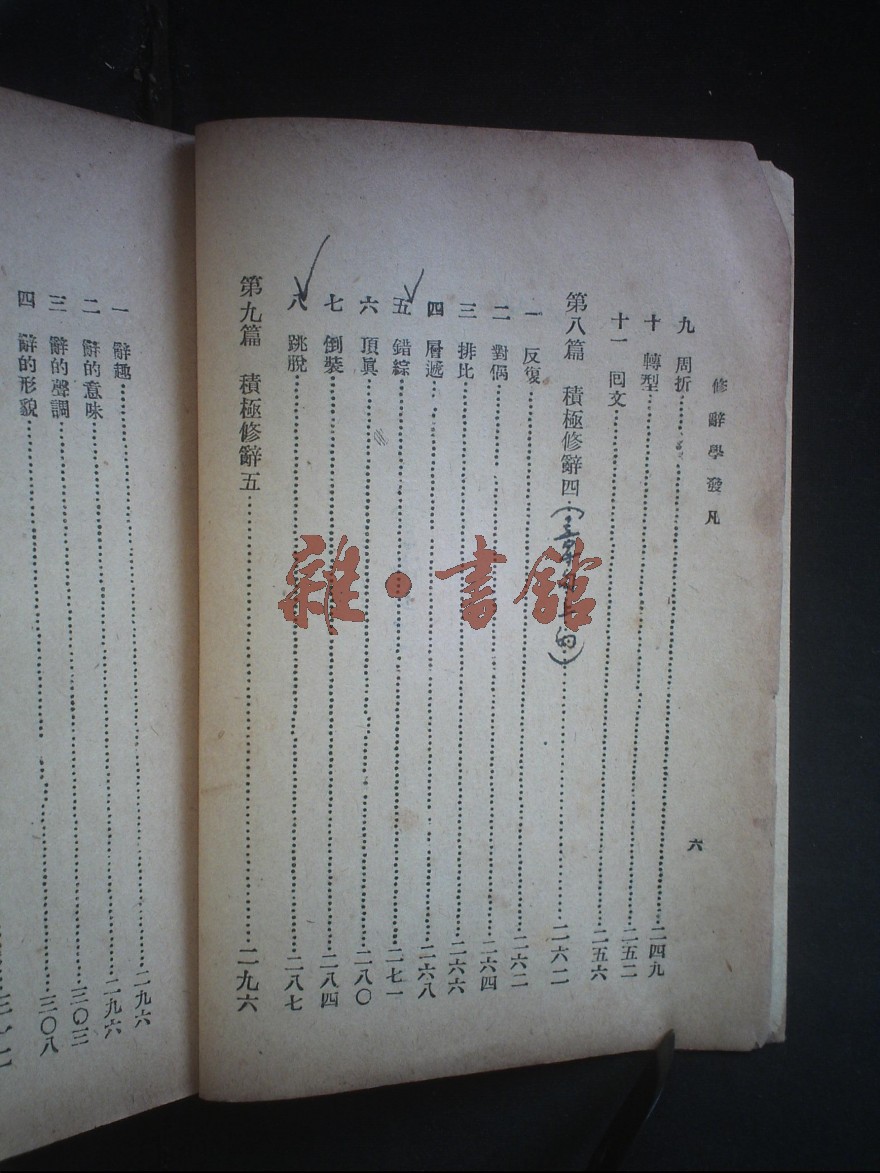 修辭學發凡
六
九 周折 二四九
十 轉型 二五二
十一 回文 二五六
第八篇 積極修辭四 (章句上的) 二六二
一 反復 二六二
二 對偶 二六四
三 排比 二六六
四 層遞 二六八
五 錯綜 二七一
六 頂眞 二八〇
七 倒裝 二八四
八 跳脫 二八七
第九篇 積極修辭五 二九六
一 辭趣 二九六
二 辭的意味 二九六
三 辭的聲調 三〇三
四 辭的形貌 三〇八
雜·書館